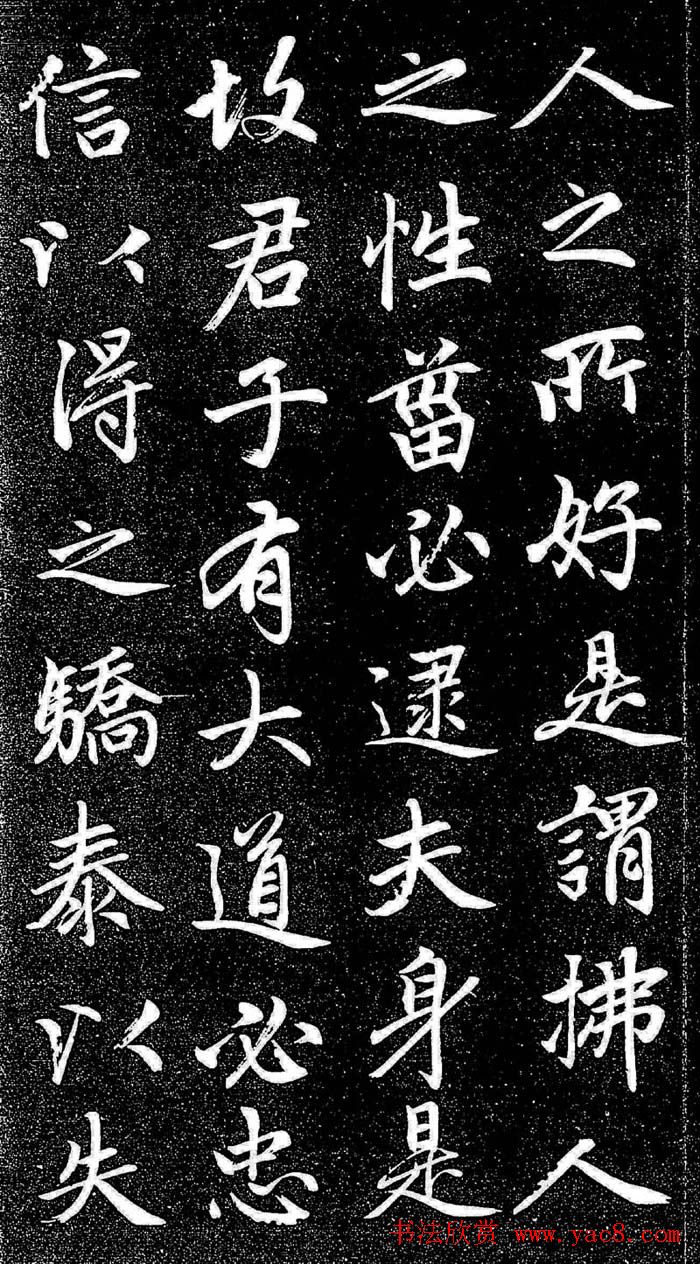 人之所好是謂拂人
之性菑必逮夫身是
故君子有大道必忠
信以得之驕泰以失
书法欣赏 www.yac8.com